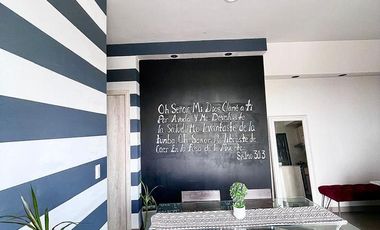 Oh Señor Mi Dios Clamé a ti
Por Ayuda Y Me Devolviste
la Salud. Me levantaste de la
tumba Oh Señor Me libraste de
Caer En la Fosa de la Muerte
Salmo 30:3